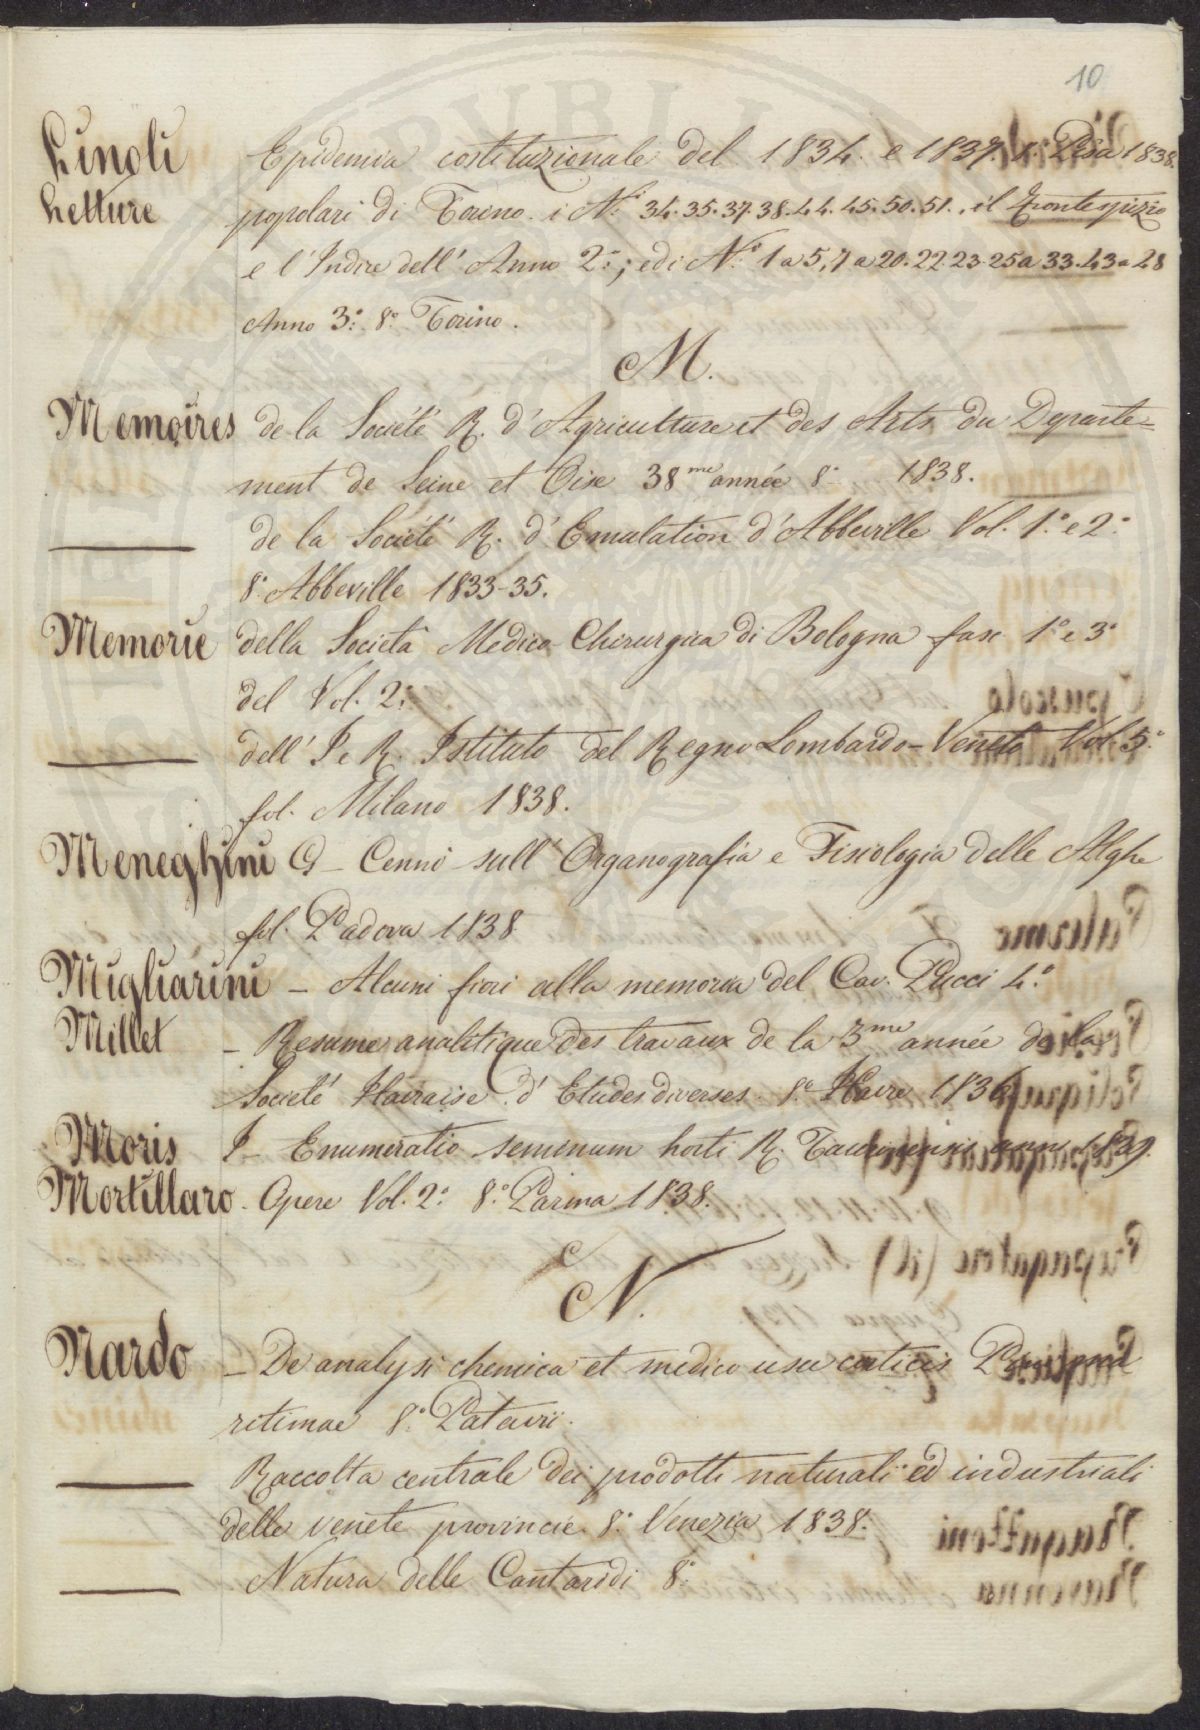 10
Linoli Epidemia costituzionale del 1834. e 1837. 8.° Pisa 1838.
Letture popolari di Torino. i N.i 34.35.37.38.44.45.50.51., il Frontespizio
e l'Indice dell' Anno 2.°; ed i N.i 1 a 5, 7 a 20. 22. 23. 25 a 33. 43 a 48
Anno 3.° 8.° Torino.
M.
Memoires de la Société R. d'Agriculture et des Arts du Departe=
ment de Seine et Oise 38me année 8.° 1838.
— de la Société R. d'Emulation d'Abbeville Vol. 1.° e 2.°
8.° Abbeville 1833-35.
Memorie della Società Medico-Chirurgica di Bologna fasc 1.° e 3.°
del Vol. 2.°
— dell' I. e R. Istituto del Regno Lombardo-Veneto Vol. 5.°
fol. Milano 1838.
Meneghini G — Cenni sull' Organografia e Fisiologia delle Alghe
fol. Padova 1838
Migliarini — Alcuni fiori alla memoria del Cav. Pucci 4.°
Millet — Resume analitique des travaux de la 3me année de la
Societé Havraise d'Etudes diverses. 8.° Havre 1836.
Moris I — Enumeratio seminum horti R. Taurinensis anni 1839.
Mortillaro — Opere Vol. 2.° 8.° Parma 1838.
N.
Nardo — De analysi chemica et medico usu corticis
ritimae 8.° Patavii.
— Raccolta centrale dei prodotti naturali ed industriali
delle venete provincie. 8.° Venezia 1838.
— Natura delle Cantaridi 8.°